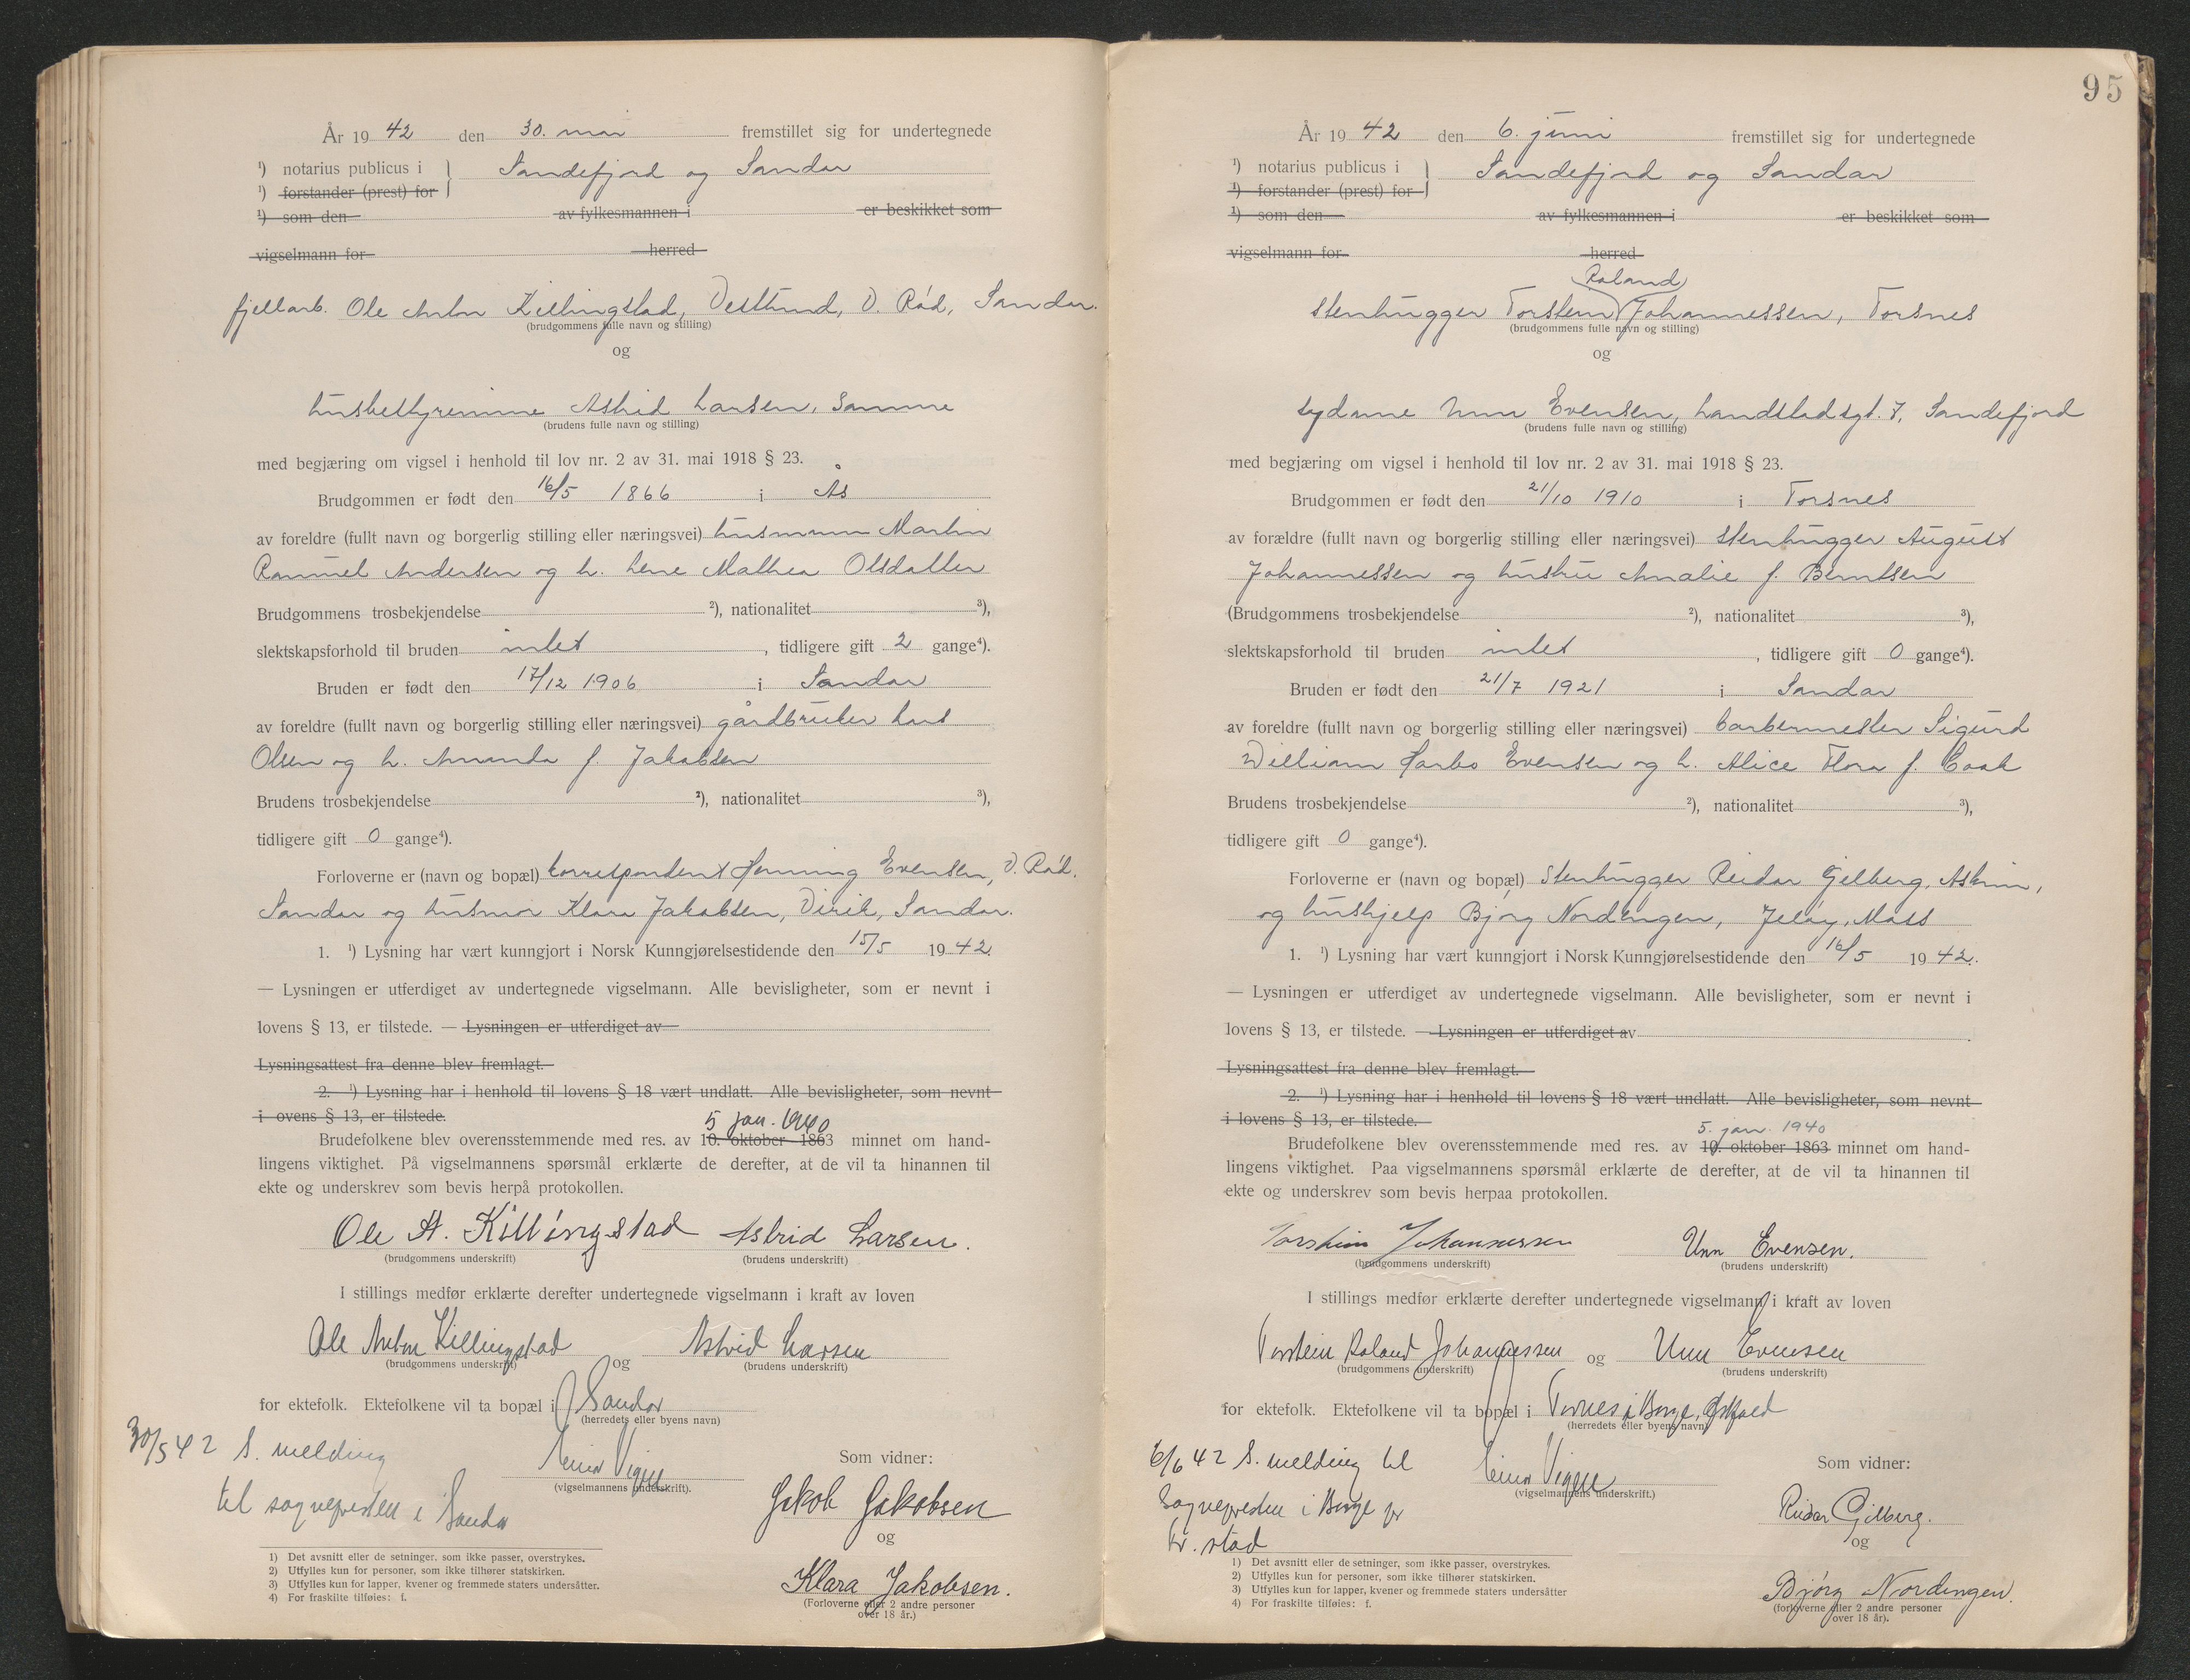 År 1942 den 30. mai fremstillet sig for undertegnede
¹) notarius publicus i } Sandefjord og Sandar
¹) forstander (prest) for
¹) som den av fylkesmannen i er beskikket som
vigselmann for herred
fjellarb. Ole Anton Killingstad, Vestlund, V. Rød, Sandar.
(brudgommens fulle navn og stilling)
og
husbestyrerinne Astrid Larsen, samme
(brudens fulle navn og stilling)
med begjæring om vigsel i henhold til lov nr. 2 av 31. mai 1918 § 23.
Brudgommen er født den 16/5 1866 i Ås
av foreldre (fullt navn og borgerlig stilling eller næringsvei) husmann Martin
Rammel Andersen og h. Lene Mathea Olsdatter
Brudgommens trosbekjendelse ²), nationalitet ³),
slektskapsforhold til bruden intet, tidligere gift 2 gange⁴).
Bruden er født den 17/12 1906 i Sandar
av foreldre (fullt navn og borgerlig stilling eller næringsvei) gårdbruker Lars
Olsen og h. Amanda f. Jakobsen
Brudens trosbekjendelse ²), nationalitet ³),
tidligere gift 0 gange⁴).
Forloverne er (navn og bopæl) korrespondent Henning Evensen, V. Rød,
Sandar og husmor Klara Jakobsen, Virik, Sandar.
1. ¹) Lysning har vært kunngjort i Norsk Kunngjørelsestidende den 15/5 1942.
— Lysningen er utferdiget av undertegnede vigselmann. Alle bevisligheter, som er nevnt i
lovens § 13, er tilstede. — Lysningen er utferdiget av
Lysningsattest fra denne blev fremlagt.
2. ¹) Lysning har i henhold til lovens § 18 vært undlatt. Alle bevisligheter, som nevnt
i ovens § 13, er tilstede.
5 jan. 1940
Brudefolkene blev overensstemmende med res. av 10. oktober 1863 minnet om hand-
lingens viktighet. På vigselmannens spørsmål erklærte de derefter, at de vil ta hinannen til
ekte og underskrev som bevis herpå protokollen.
Ole A. Killingstad Astrid Larsen.
(brudgommens underskrift) (brudens underskrift)
I stillings medfør erklærte derefter undertegnede vigselmann i kraft av loven
Ole Anton Killingstad og Astrid Larsen
(brudgommens underskrift) (brudens underskrift)
for ektefolk. Ektefolkene vil ta bopæl i Sandar
(herredets eller byens navn)
30/5 42 S. melding
til sogneprestn i Sandar
Einar Vigge
(vigselmannens underskrift).
Som vidner:
Jakob Jakobsen
og
Klara Jakobsen.
(Forloverne eller 2 andre personer
over 18 år.)
1) Det avsnitt eller de setninger, som ikke passer, overstrykes.
2) Utfylles kun for personer, som ikke tilhører statskirken.
3) Utfylles kun for lapper, kvener og fremmede staters undersåtter.
4) For fraskilte tilføies: f.
95
År 1942 den 6. juni fremstillet sig for undertegnede
¹) notarius publicus i } Sandefjord og Sandar
¹) forstander (prest) for
¹) som den av fylkesmannen i er beskikket som
vigselmann for herred
Roland
stenhugger Torstein Johannessen, Torsnes
(brudgommens fulle navn og stilling)
og
sydame Unn Evensen, Landstadsgt. 7, Sandefjord
(brudens fulle navn og stilling)
med begjæring om vigsel i henhold til lov nr. 2 av 31. mai 1918 § 23.
Brudgommen er født den 21/10 1910 i Torsnes
av forældre (fullt navn og borgerlig stilling eller næringsvei) stenhugger August
Johannessen og hustru Amalie f. Berntsen
(Brudgommens trosbekjendelse ²), nationalitet ³),
slektskapsforhold til bruden intet, tidligere gift 0 gange⁴).
Bruden er født den 21/7 1921 i Sandar
av foreldre (fullt navn og borgerlig stilling eller næringsvei) barbermester Sigurd
William Harbo Evensen og h. Alice Flora f. Cook
Brudens trosbekjendelse ²), nationalitet ³),
tidligere gift 0 gange⁴).
Forloverne er (navn og bopæl) stenhugger Reidar Gjelberg, Askim,
og hushjelp Bjørg Nordengen, Jeløy, Moss
1. ¹) Lysning har vært kunngjort i Norsk Kunngjørelsestidende den 16/5 1942.
— Lysningen er utferdiget av undertegnede vigselmann. Alle bevisligheter, som er nevnt i
lovens § 13, er tilstede. — Lysningen er utferdiget av
Lysningsattest fra denne blev fremlagt.
2. ¹) Lysning har i henhold til lovens § 18 vært undlatt. Alle bevisligheter, som nevnt
i lovens § 13, er tilstede.
5. jan. 1940
Brudefolkene blev overensstemmende med res. av 10. oktober 1863 minnet om hand-
lingens viktighet. Paa vigselmannens spørsmål erklærte de derefter, at de vil ta hinannen til
ekte og underskrev som bevis herpaa protokollen.
Torstein Johannessen Unn Evensen.
(brudgommens underskrift) (brudens underskrift)
I stillings medfør erklærte derefter undertegnede vigselmann i kraft av loven
Torstein Roland Johannessen og Unn Evensen
(brudgommens underskrift) (brudens underskrift)
for ektefolk. Ektefolkene vil ta bopæl i Torsnes i Borge, Østfold
(herredets eller byens navn)
6/6 42 S. melding til
Sogneprestn i Borge pr
Fr. stad
Einar Vigge
(vigselmannens underskrift.)
Som vidner:
Reidar Gjelberg.
og
Bjørg Nordengen.
(forloverne eller 2 andre personer
over 18 år).
1) Det avsnitt eller de setninger, som ikke passer, overstrykes.
2) Utfylles kun for personer, som ikke tilhører statskirken.
3) Utfylles kun for lapper, kvener og fremmede staters undersåtter
4) For fraskilte tilføies: f.